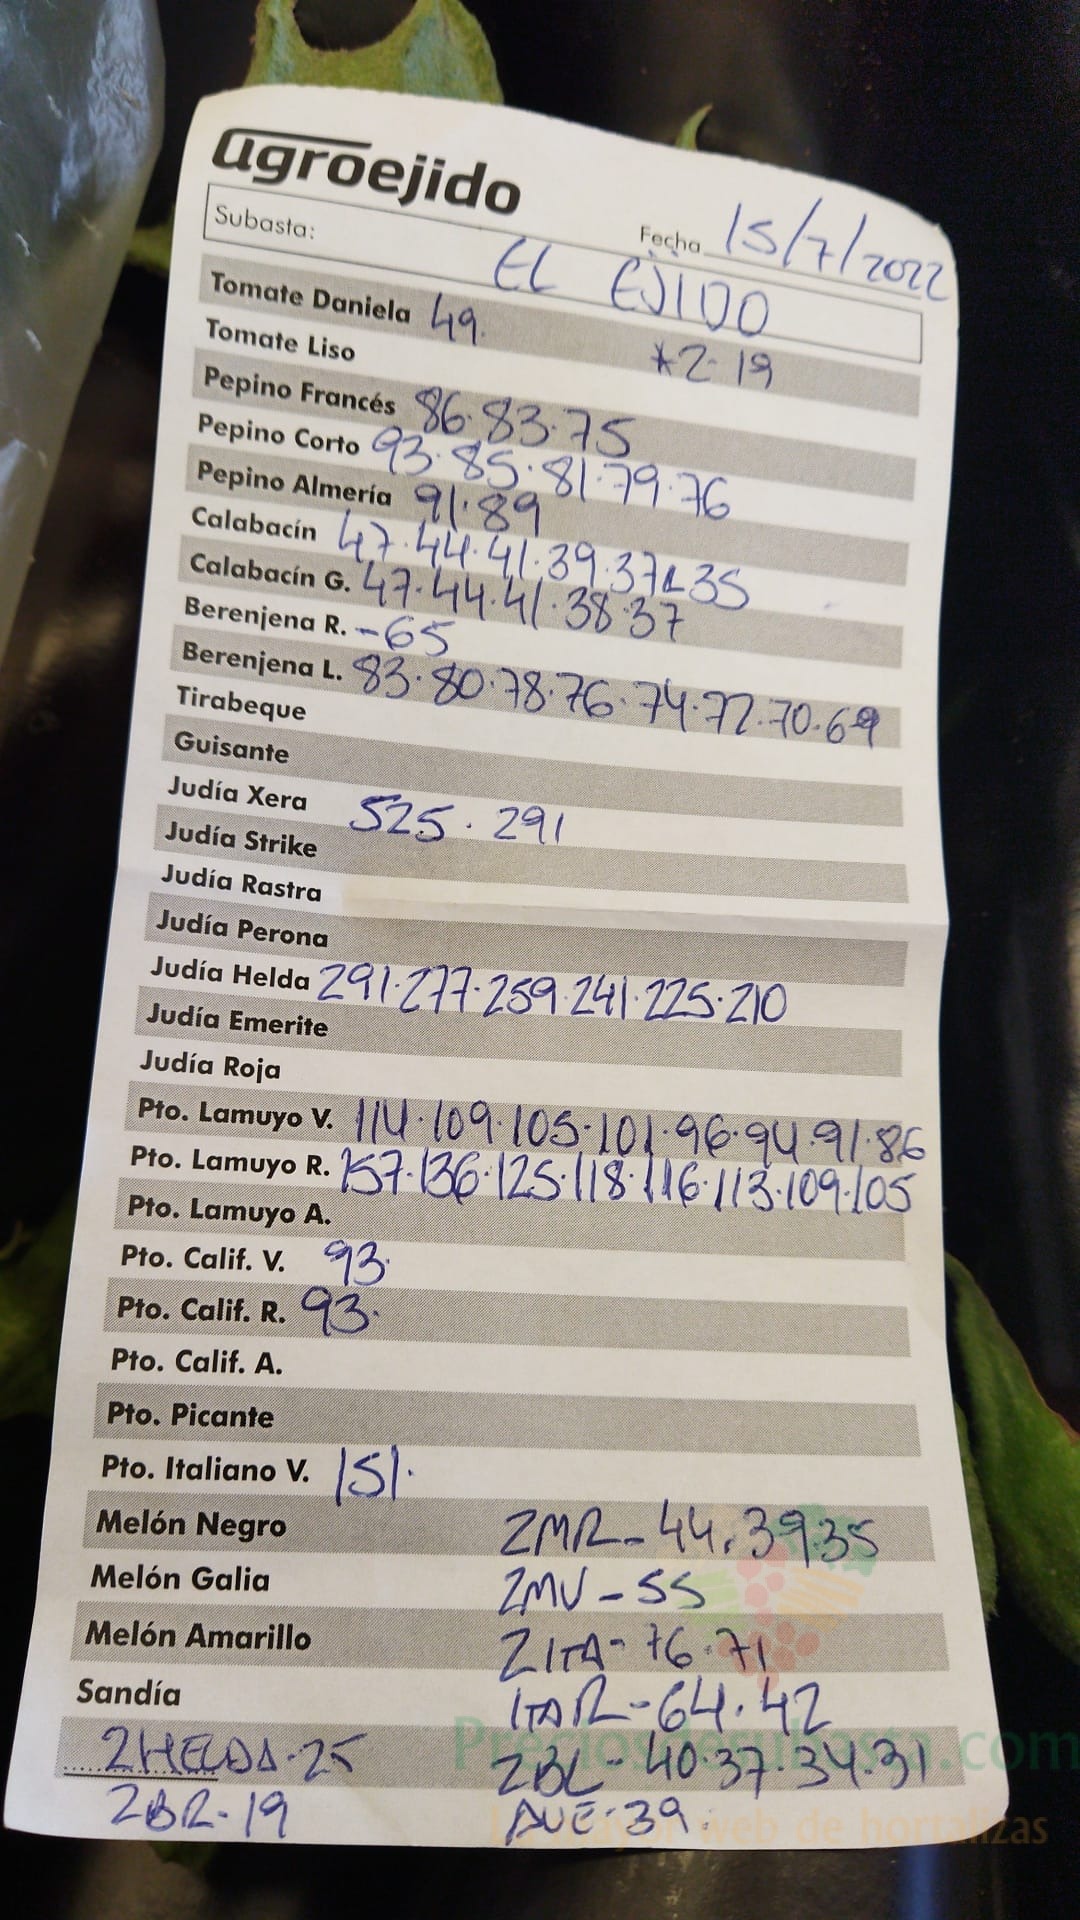 agroejido
Subasta: Fecha 15/7/2022
EL EJIDO
Tomate Daniela 49.
*2-19
Tomate Liso
Pepino Francés 86.83.75
Pepino Corto 93.85.81.79.76
Pepino Almería 91.89
Calabacín 47.44.41.39.37 35
Calabacín G. 47.44.41.38.37
Berenjena R. -65
Berenjena L. 83.80.78.76.74.72.70.69
Tirabeque
Guisante
Judía Xera 525.291
Judía Strike
Judía Rastra
Judía Perona
Judía Helda 291.277.259.241.225.210
Judía Emerite
Judía Roja
Pto. Lamuyo V. 114.109.105.101.96.94.91.86
Pto. Lamuyo R. 157.136.125.118.116.113.109.105
Pto. Lamuyo A.
Pto. Calif. V. 93.
Pto. Calif. R. 93.
Pto. Calif. A.
Pto. Picante
Pto. Italiano V. 151.
Melón Negro 2MR-44.39.35
Melón Galia 2MV-55
Melón Amarillo 2ITA-76.71
Sandía ITAR-64.42
2HELDA.25 2BL-40.37.34.31
2BR-19 AVE.39.
Preciosdesubasta.com
La mayor web de hortalizas